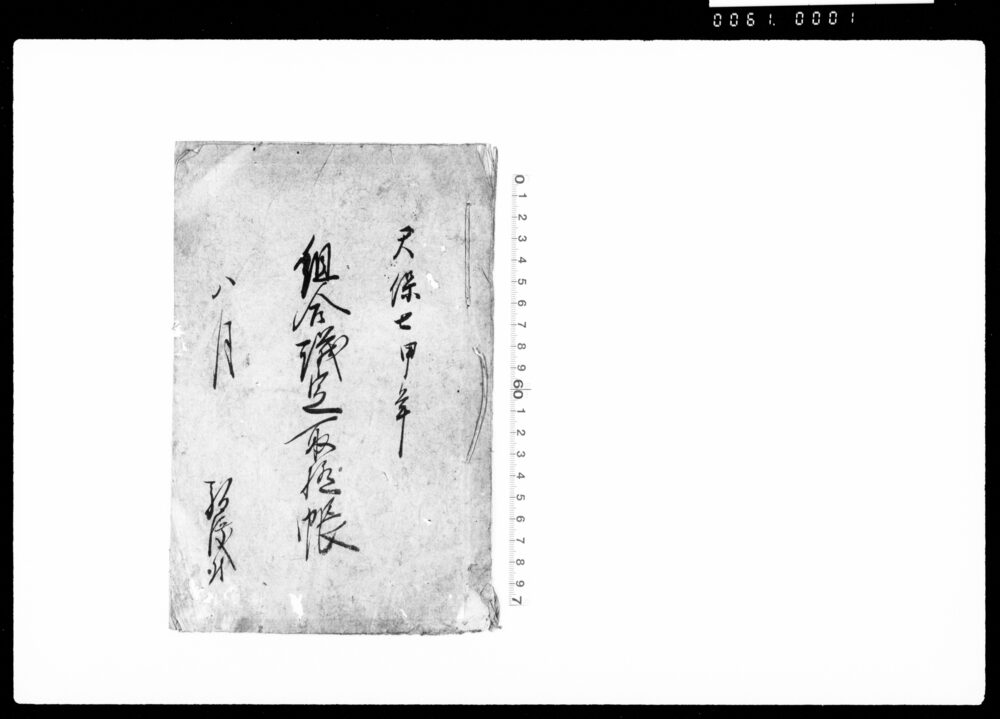 0061.0001
天保七申年
組合議定取極帳
八月
0 1 2 3 4 5 6 7 8 9 60 1 2 3 4 5 6 7 8 9 7